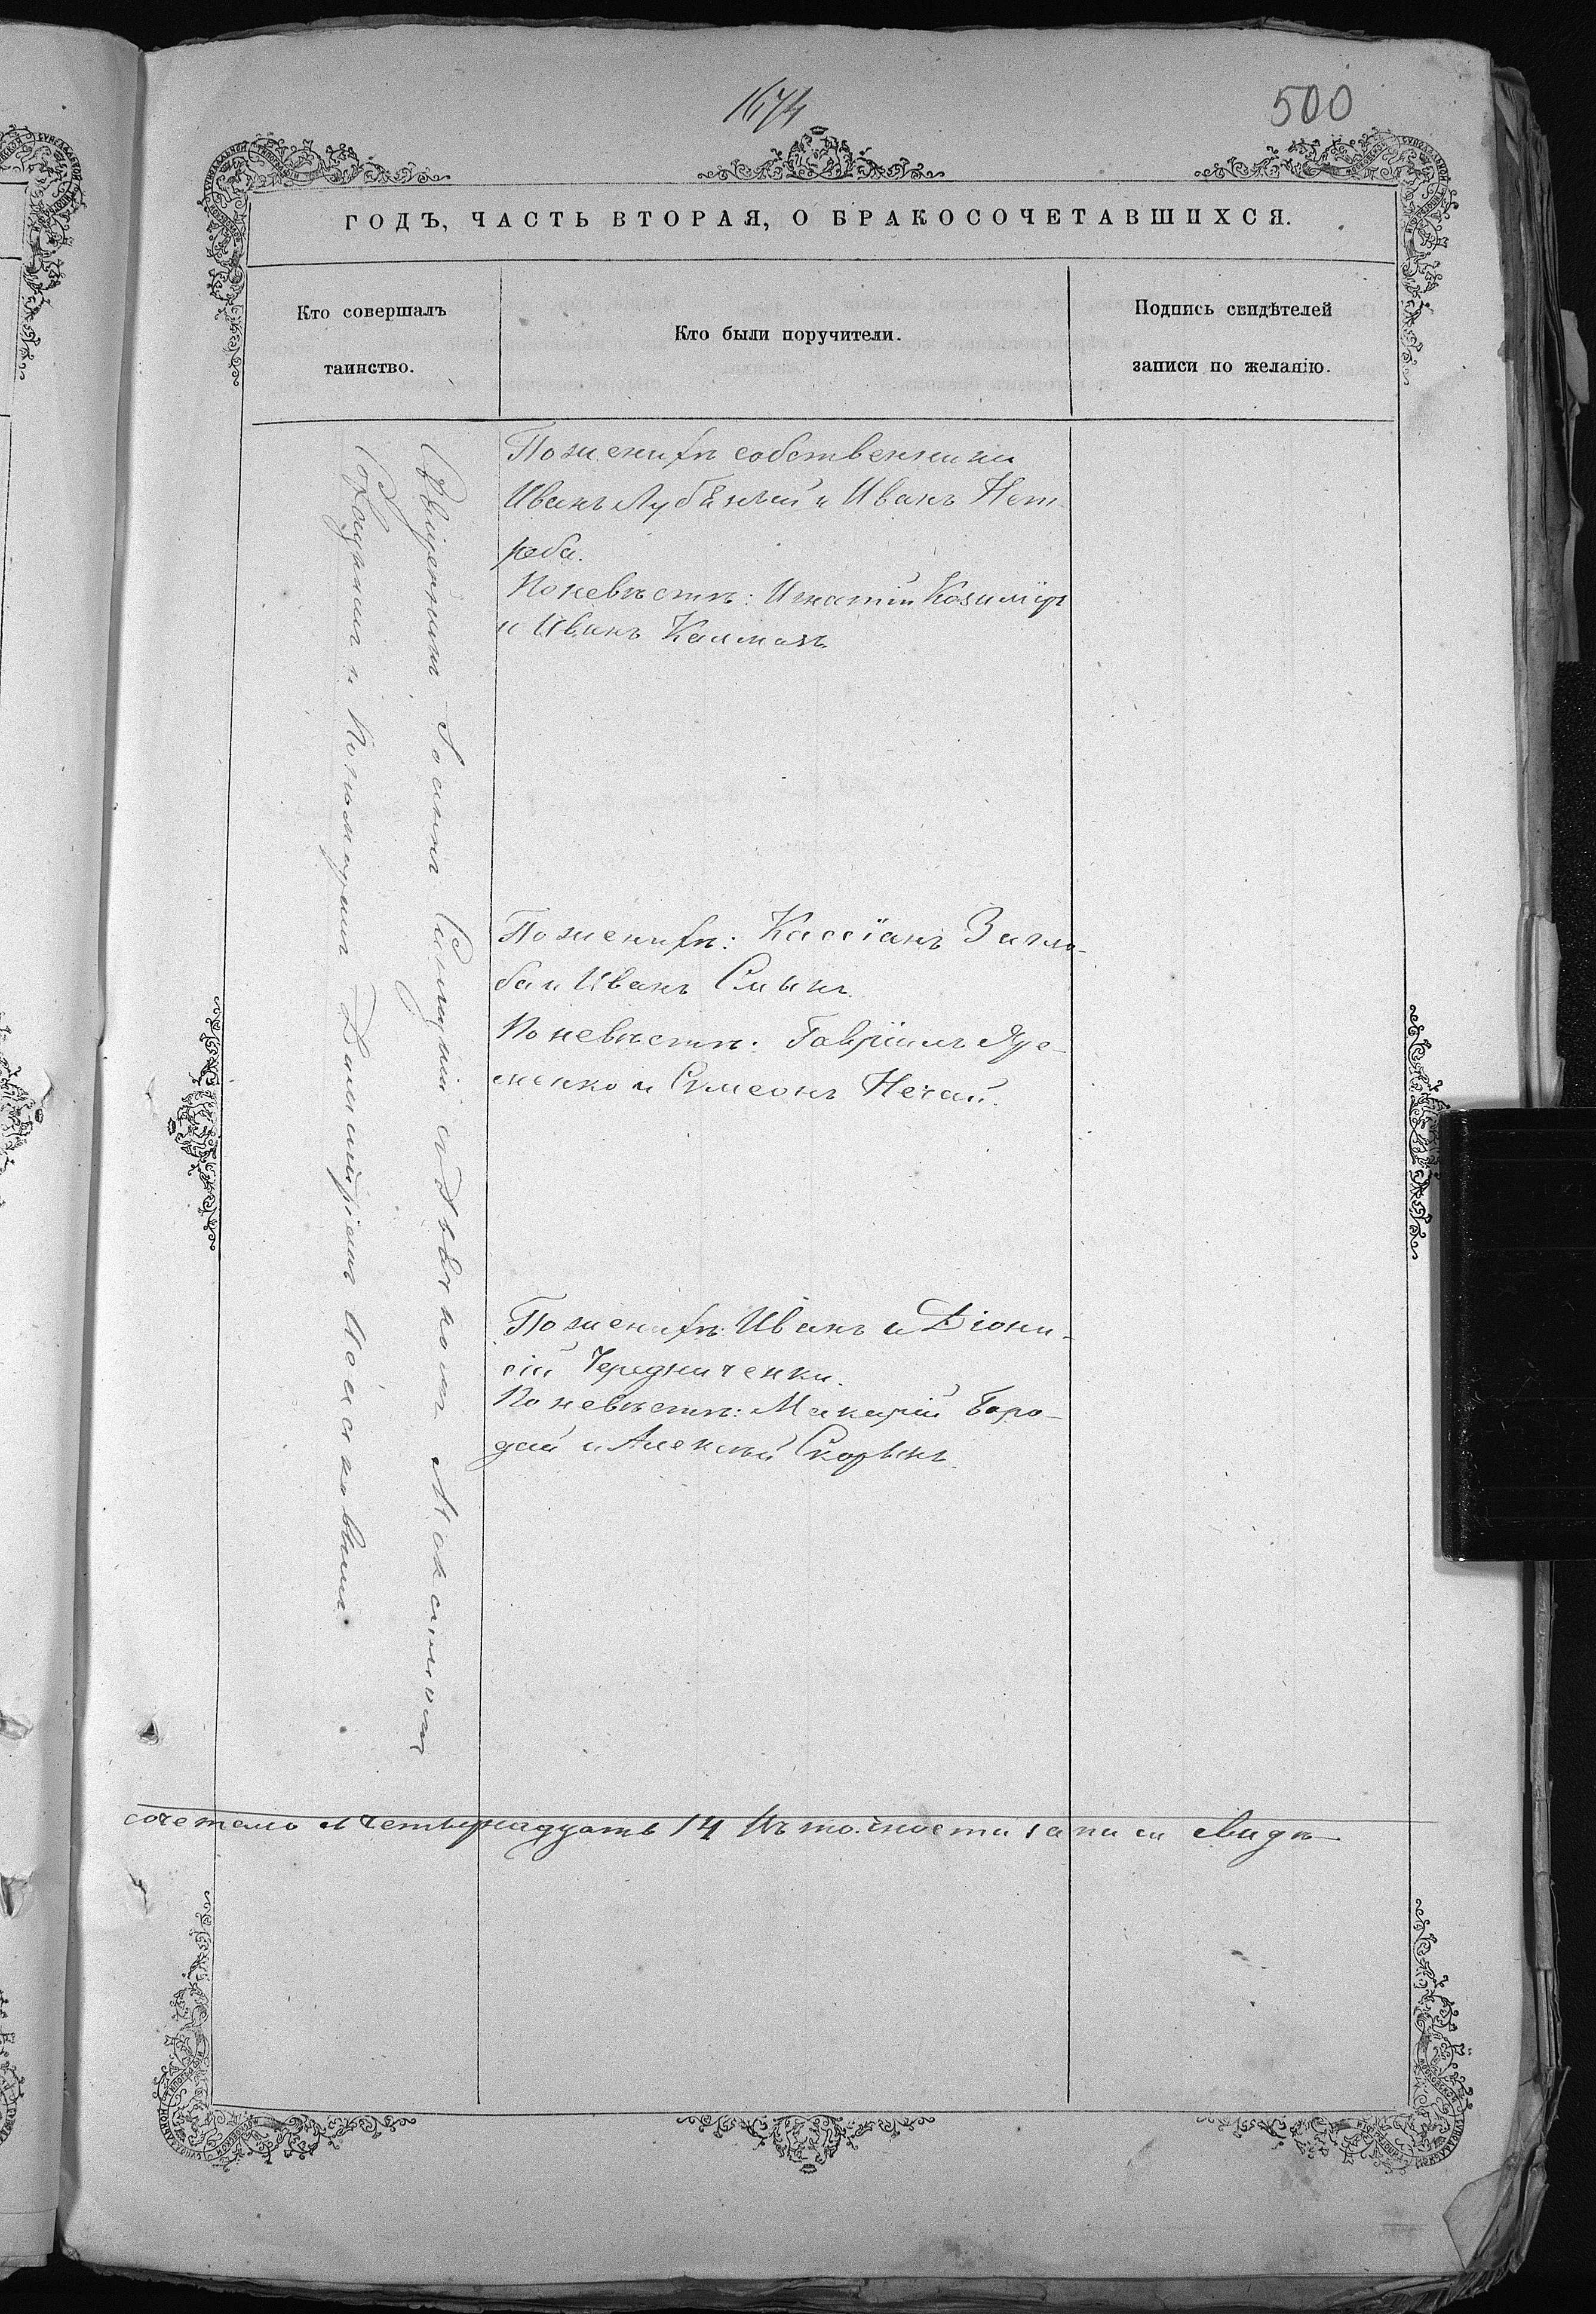 500
ГОДЪ, ЧАСТЬ ВТОРАЯ, О БРАКОСОЧЕТАВШИХСЯ.
Кто совершалъ
таинство.
Кто были поручители.
Подпись свидѣтелей
записи по желанію.
Священникъ Іоаннъ Сикудкій съ Дьячкомъ Максимомъ
и Пономаремъ Димитріемъ
По женихѣ собственники
Иванъ Лубяный и Иванъ Нет-
реба.
По невѣстѣ: Игнатій Козимиръ
и Иванъ Калмазъ
По женихѣ: Кассіанъ Загло-
ба и Иванъ Смыкъ.
По невѣстѣ: Гавріилъ Яре-
менко и Симеонъ Нечай.
По женихѣ: Иванъ и Діони-
сій Чередниченки.
По невѣстѣ: Макарій Боро-
дай и Алексѣй Скорыкъ.
сочетало четырнадцать 14 Въ точности записи свидѣ-